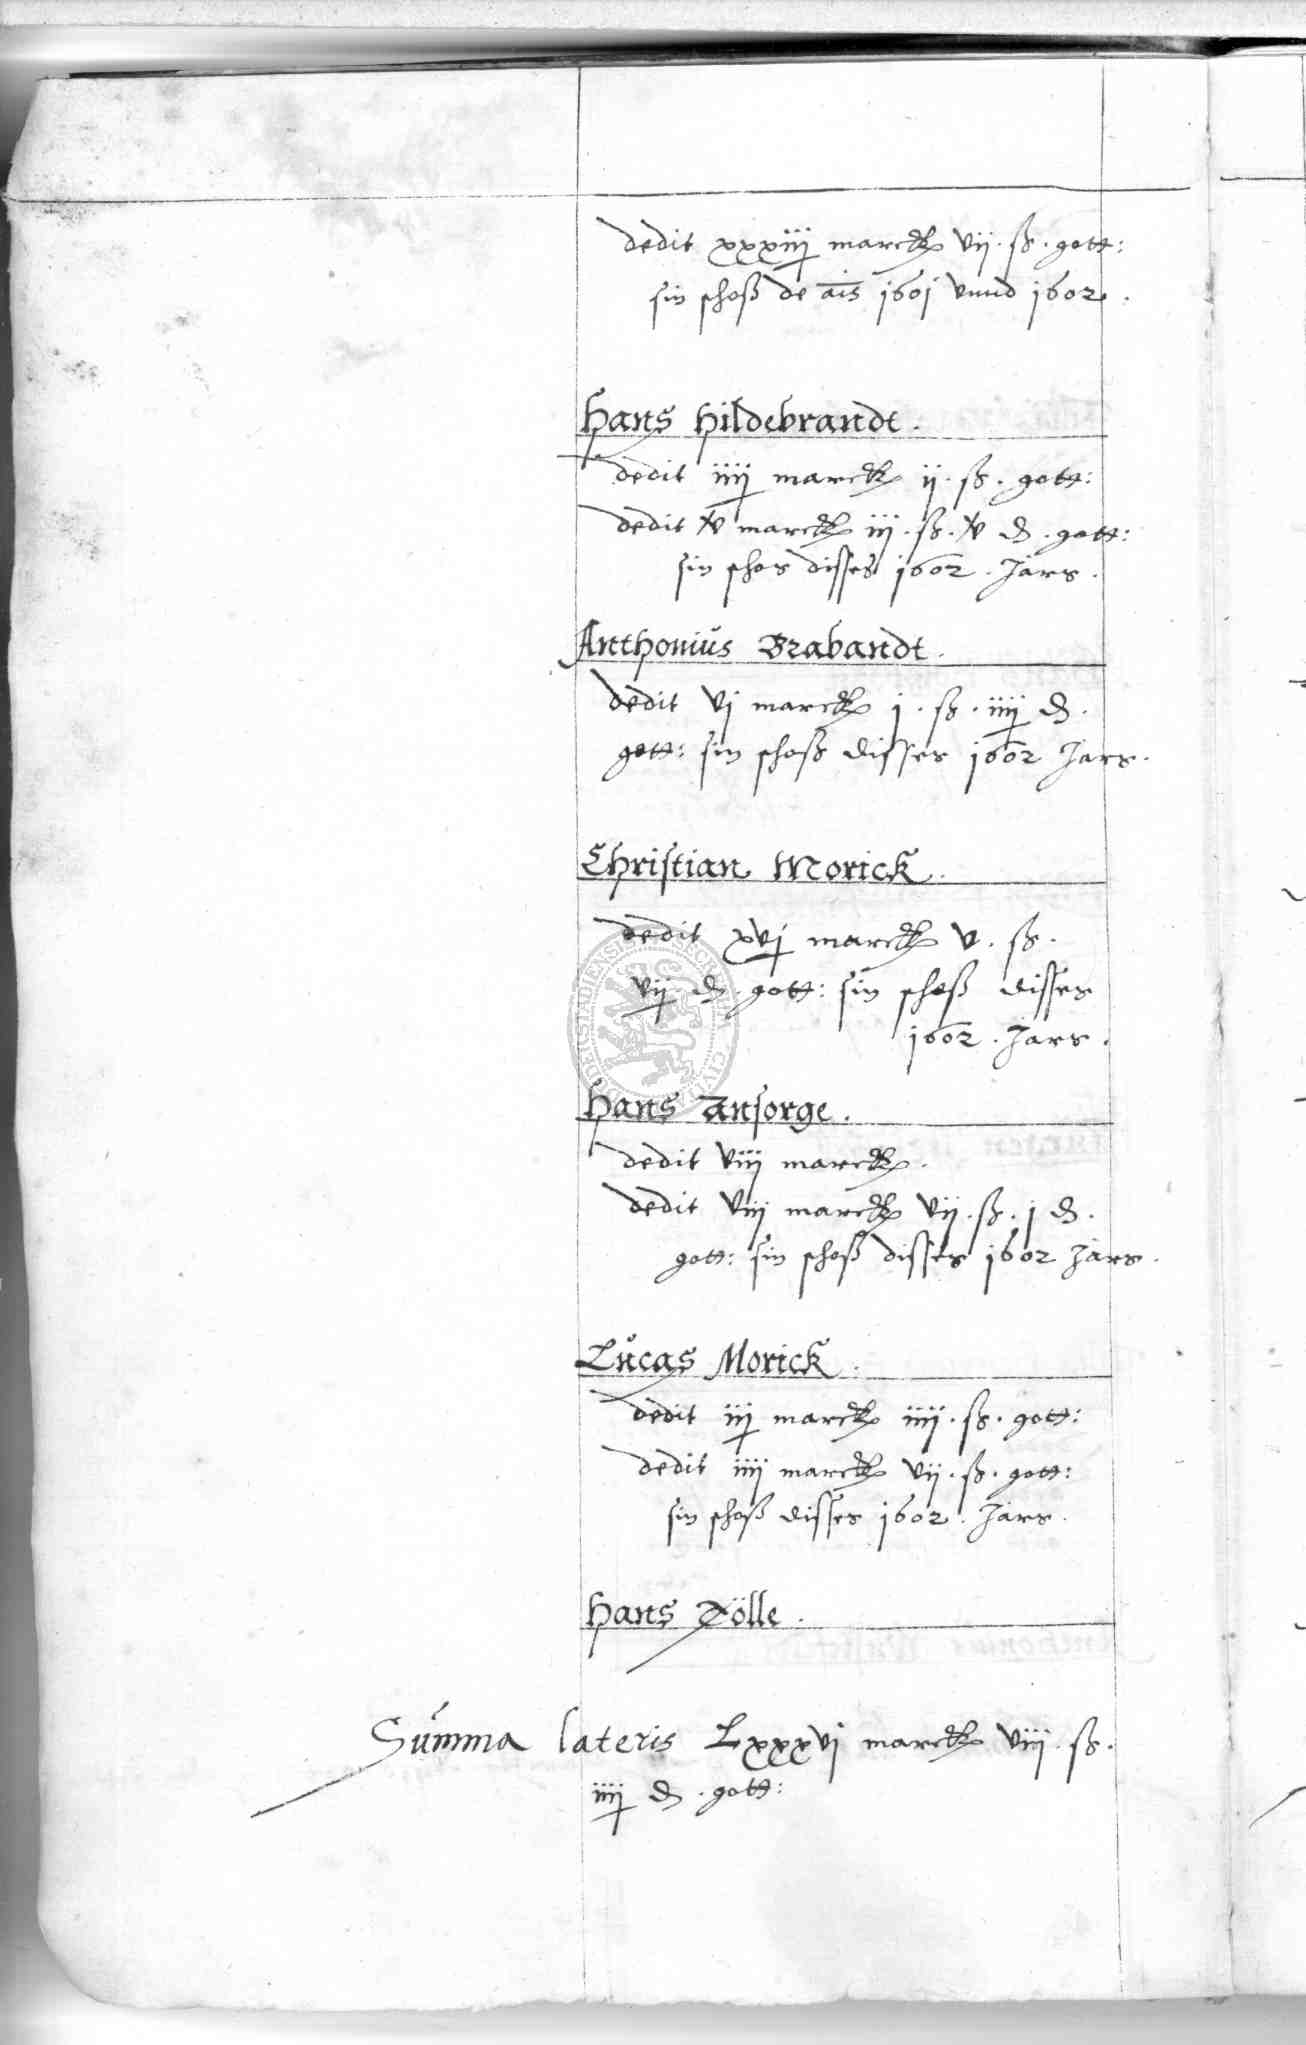 dedit xxxiiij marck vij. ß. gott:
sin schoß de ais 1601 vnnd 1602.
Hans Hildebrandt.
dedit iiij marck ij. ß. gott:
dedit v marck iij. ß. v ₰. gott:
sin schos disses 1602. Jars.
Anthonius Brabandt.
dedit vj marck j. ß. iiij ₰.
gott: sin schoß disses 1602 Jars.
Christian Morick.
dedit xvj marck v. ß.
vij ₰. gott: sin schoß disses
1602. Jars.
Hans Ansorge.
dedit viij marck.
dedit viij marck vij. ß. j ₰.
gott: sin schoß disses 1602 Jars.
Lucas Morick.
dedit iij marck iiij. ß. gott:
dedit iiij marck vij. ß. gott:
sin schoß disses 1602. Jars.
Hans Dölle.
Summa lateris Lxxxvj marck viij. ß.
iiij ₰. gott: